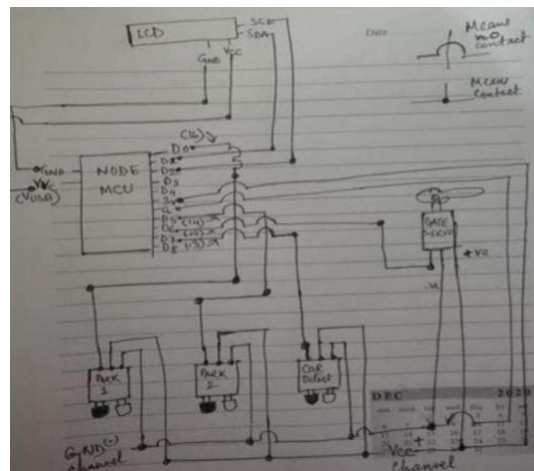 LCD
SCL
SDA
GND
VCC
Date
Means
no
contact
Means
contact
(16)
GND
VCC
(VUSB)
NODE
MCU
D0
D1
D2
D3
D4
3v
G
D5
D6
D7
D8
(14)
(13)
GATE
SERVO
+ve
-ve
PARK
1
PARK
2
CAR
Detect
DEC 2020
GND(-)
channel
VCC +
channel